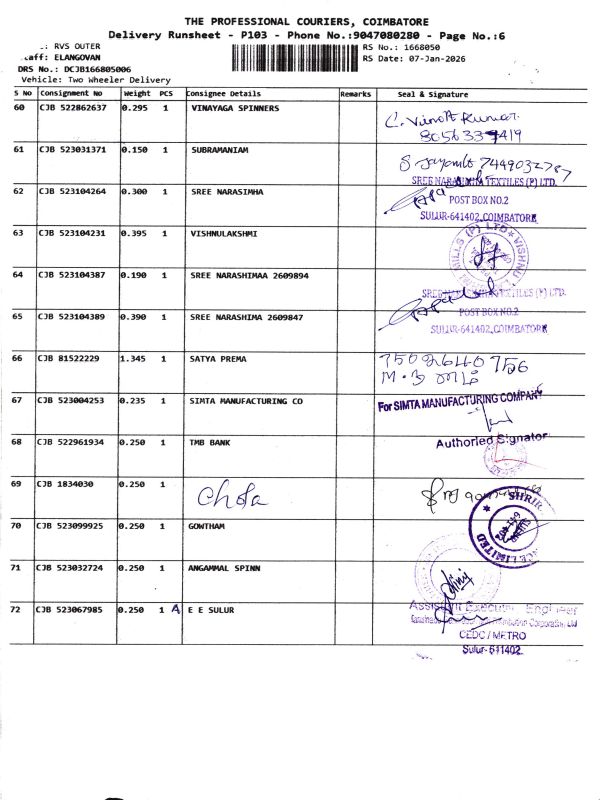 THE PROFESSIONAL COURIERS, COIMBATORE
Delivery Runsheet - P103 - Phone No.:9047080280 - Page No.:6
.: RVS OUTER
RS No.: 1668050
taff: ELANGOVAN
RS Date: 07-Jan-2026
DRS No.: DCJB166805006
Vehicle: Two Wheeler Delivery
S No Consignment No Weight PCS Consignee Details Remarks Seal & Signature
60 CJB 522862637 0.295 1 VINAYAGA SPINNERS
C. Vinoth Kumar
61 CJB 523031371 0.150 1 SUBRAMANIAM
7449032787
62 CJB 523104264 0.300 1 SREE NARASIMHA
SREE NARASIMHA TEXTILES (P) LTD.
POST BOX NO.2
SULUR-641402, COIMBATORE
63 CJB 523104231 0.395 1 VISHNULAKSHMI
MILLS (P) LTD ★ VISHNU
64 CJB 523104387 0.190 1 SREE NARASHIMAA 2609894
TEXTILES (P) LTD.
65 CJB 523104389 0.390 1 SREE NARASHIMA 2609847
POST BOX NO.2
SULUR-641402, COIMBATORE
66 CJB 81522229 1.345 1 SATYA PREMA
67 CJB 523004253 0.235 1 SIMTA MANUFACTURING CO
For SIMTA MANUFACTURING COMPANY
Authoried Signator
68 CJB 522961934 0.250 1 TMB BANK
69 CJB 1834030 0.250 1
Chola
SHRIR
NCE LIMITED
70 CJB 523099925 0.250 1 GOWTHAM
71 CJB 523032724 0.250 1 ANGAMMAL SPINN
72 CJB 523067985 0.250 1 A E E SULUR
Assistant Executive Engineer
Distribution Corporation Ltd
CEDC / METRO
Sulur- 611402